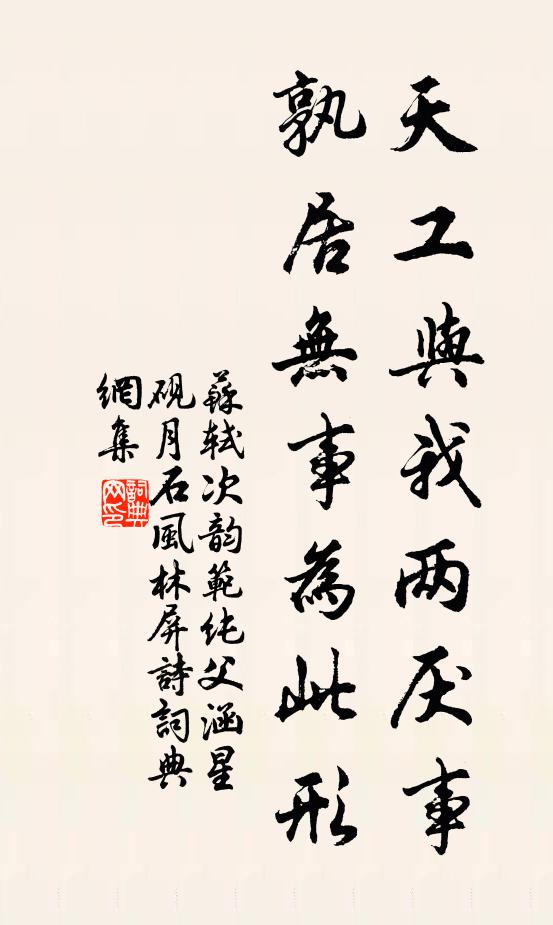 天工與我两厌事
孰居無事為此形
蘇軾次韵範纯父涵星
硯月石風林屏詩詞典
網集
詞典
网印